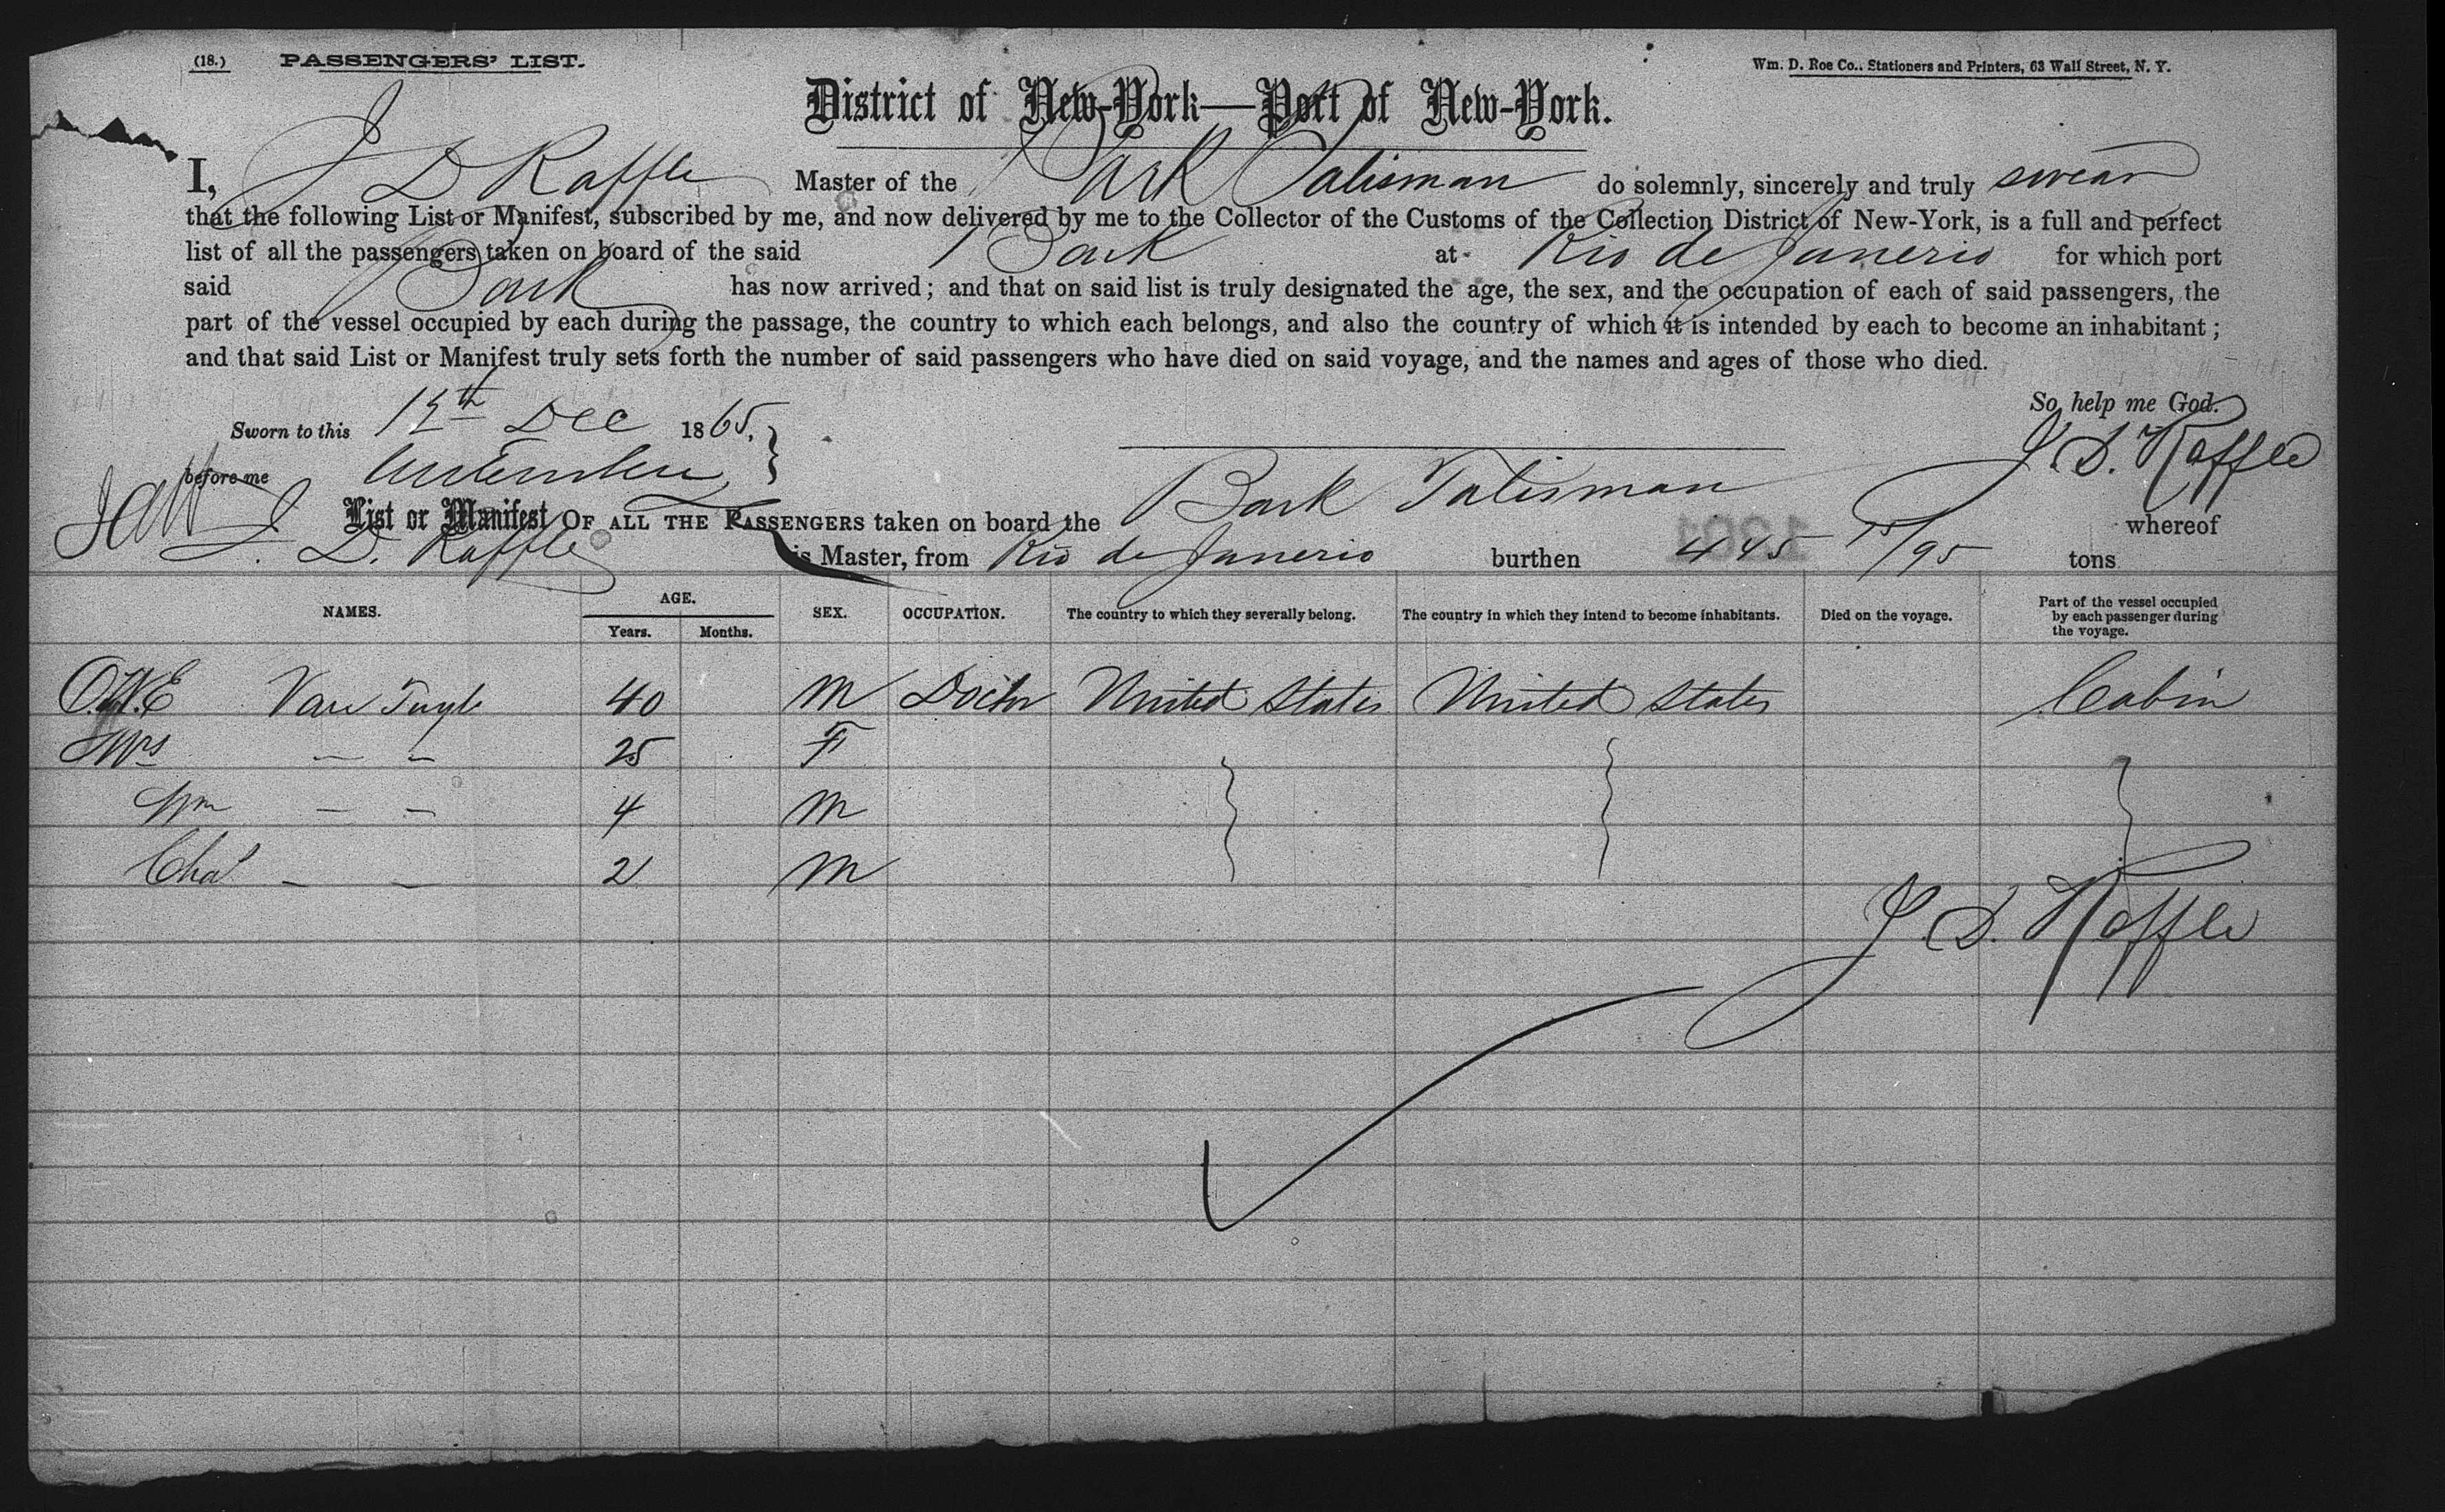 (18.) PASSENGERS' LIST. Wm. D. Roe Co., Stationers and Printers, 63 Wall Street, N. Y.
District of New-York—Port of New-York.
I, J D Raffle Master of the Bark Talisman do solemnly, sincerely and truly swear
that the following List or Manifest, subscribed by me, and now delivered by me to the Collector of the Customs of the Collection District of New-York, is a full and perfect
list of all the passengers taken on board of the said Bark at Rio de Janerio for which port
said Bark has now arrived; and that on said list is truly designated the age, the sex, and the occupation of each of said passengers, the
part of the vessel occupied by each during the passage, the country to which each belongs, and also the country of which it is intended by each to become an inhabitant;
and that said List or Manifest truly sets forth the number of said passengers who have died on said voyage, and the names and ages of those who died.
So help me God.
Sworn to this Dec 1865. J. D. Raffle
before me
List or Manifest OF ALL THE PASSENGERS taken on board the Bark Talisman whereof
J. D. Raffle is Master, from Rio de Janerio burthen 445 /95 tons
NAMES. AGE. Years. Months. SEX. OCCUPATION. The country to which they severally belong. The country in which they intend to become inhabitants. Died on the voyage. Part of the vessel occupied by each passenger during the voyage.
Van Tuyle 40 M Doctor United States United States Cabin
Mrs — — 25 F
Wm — — 4 M
Chas — — 2 M
J. D. Raffle